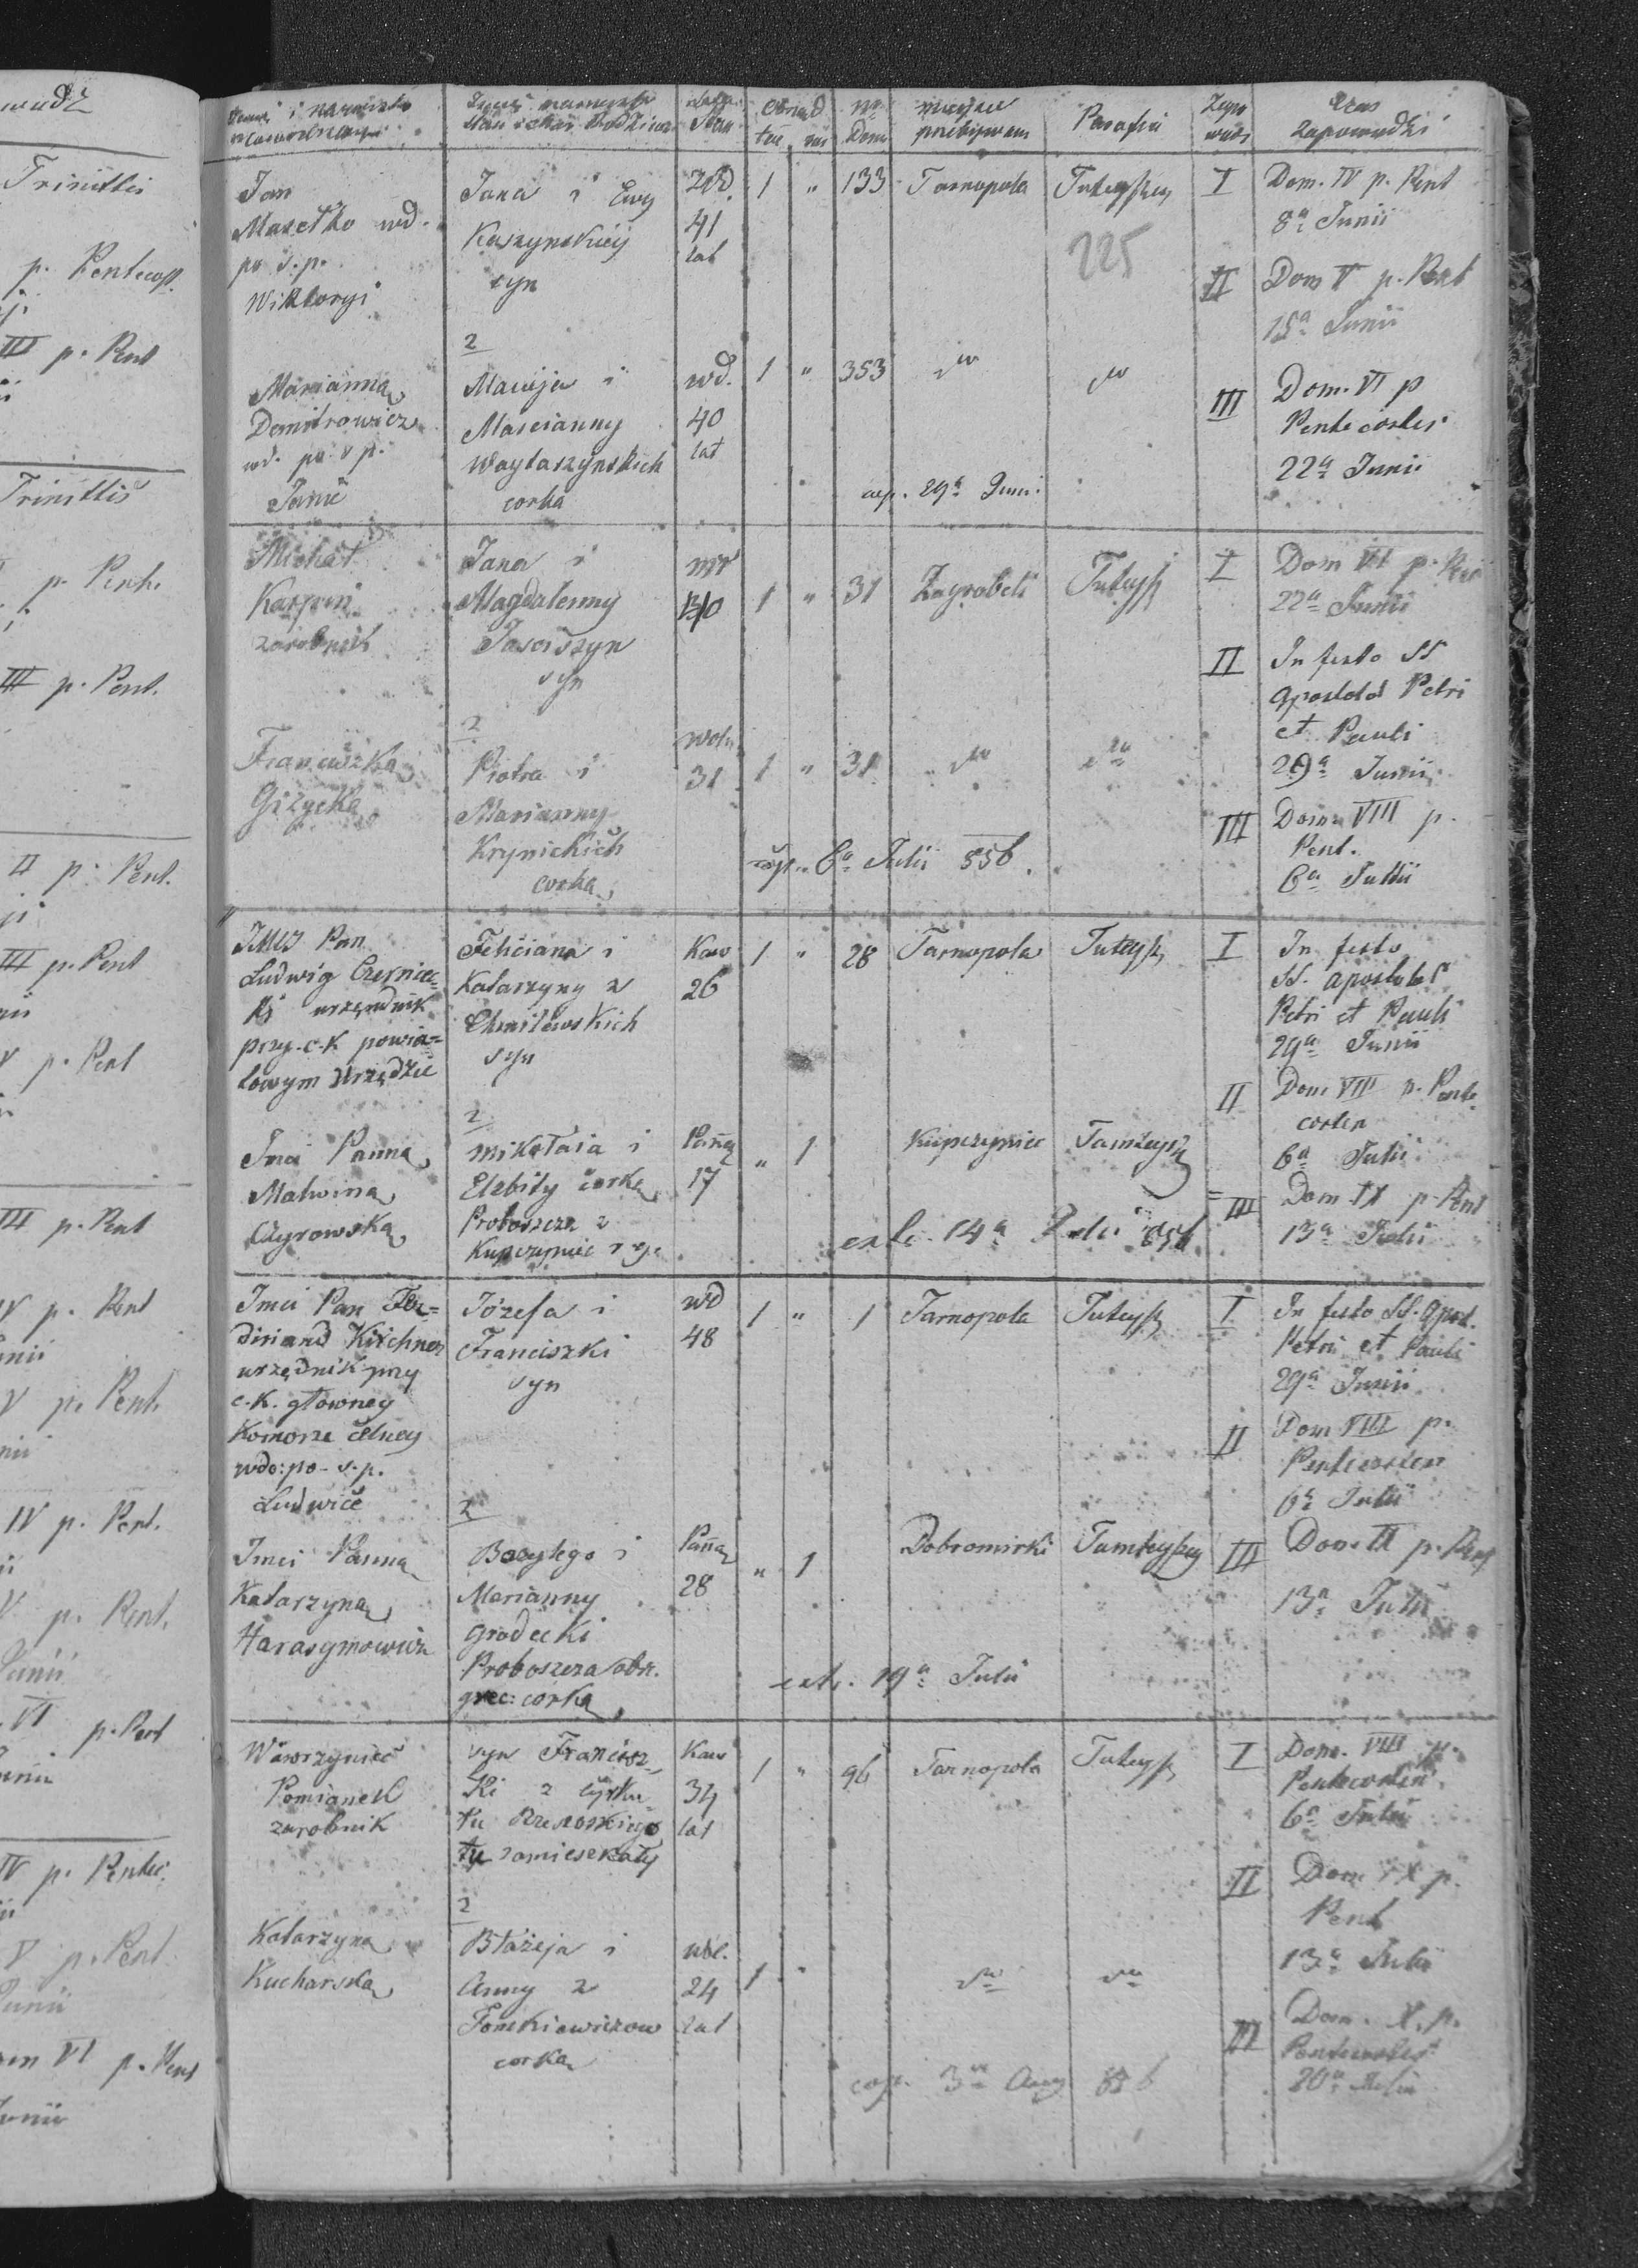 wudź
Trinittis
p. Pentecost.
III p. Pent
Trinittis
p. Pent.
III p. Pent.
II p. Pent.
III p. Pent
V p. Pent
III p. Pent
IV p. Pent
V p. Pent.
IV p. Pent.
V p. Pent.
Junii
VI p. Pent
IV p. Pentec.
V p. Pent
Junii
VI p. Pent
Junii
Imię i nazwisko
Stan Rodziców
Stan
Obrząd
łać. rus
Nr Domu
miejsce
przebywan
Parafia
Zapo
wiedź
czas
zapowiedzi
Jan
Masełko wd.
po ś.p.
Wiktoryi
Jana i Ewy
Kaszynskiey
syn
Wd.
41
lat
1 " 133 Tarnopola
225
I Dom. IV p. Pent
8a Junii
II Dom V p. Pent
15a Junii
2
Marianna
Demitrowicz
wd. po ś p.
Janie
Macieja i
Marcianny
Waytaszynskich
corka
wd.
40
lat
1 " 353 dto dto
III Dom. VI p
Pentecostes
22a Junii
cop. 29a Junii
Michał
Karpin
zarobnik
Jana i
Magdalenny
syn
1 " 31 Zagrobela Tuteysz
I Dom VI p. Pen
22a Junii
II In festo SS
Apostolor Petri
et Pauli
29a Junii
2
Franciszka
Giżycka
Piotra i
Marianny
Krynickich
corka
woln
31
1 " 31 dto dto
III Dom VIII p.
Pent.
6a Julii
cop. 6a Julii 856.
JMCJ Pan
Ludwig Czerniec=
ki urzędnik
przy c.k powia=
towym Urzędzie
Feliciana i
Katarzyny z
Chmilewskich
syn
Kaw
26
1 " 28 Tarnopola Tuteysz
I In festo
SS. apostolor
Petri et Pauli
29a Junii
II Dom VIII p. Pente
costen
6a Julii
2
Jmci Panna
Malwina
Mikołaia i
Elzbity corka
Proboszcza z
Kupczyniec
Panna
17
" 1 Kupczyniec Tamteysz
III Dom IX p. Pent
13a Julii
ext. 14a Julii 856
Jmci Pan Fer=
dinand Kirchner
urzędnik przy
c.k. główney
Komorze celney
wdo: po ś.p.
Ludwice
Józefa i
Franciszki
syn
wd
48
1 " 1 Tarnopola Tuteysz
I In festo SS. Apost.
Petri et Pauli
29a Junii
II Dom VIII p.
Pentecosten
6a Julii
2
Jmci Panna
Katarzyna
Harasymowicz
Bazylego i
Marianny
Grodecki
Proboszcza obr.
grec: corka
Panna
28
" 1 Dobromirki Tamteyszey
III Dom IX p. Pent
13a Julii
ext. 19a Julii
Wawrzyniec
Pomianek
zarobnik
syn Francisz=
ki z
tu zamieszkały
Kaw
34
lat
1 " 96 Tarnopola Tuteysz
I Dom. VIII p.
Pentecosten
6a Julii
II Dom IX p.
Pent
13a Julii
2
Katarzyna
Kucharska
Błażeja i
Anny z
Tomkiewiczow
corka
wol.
24
lat
1 " dto dto
III Dom. X. p.
Pentecosten
20a Julii
cop. 3a Aug 856